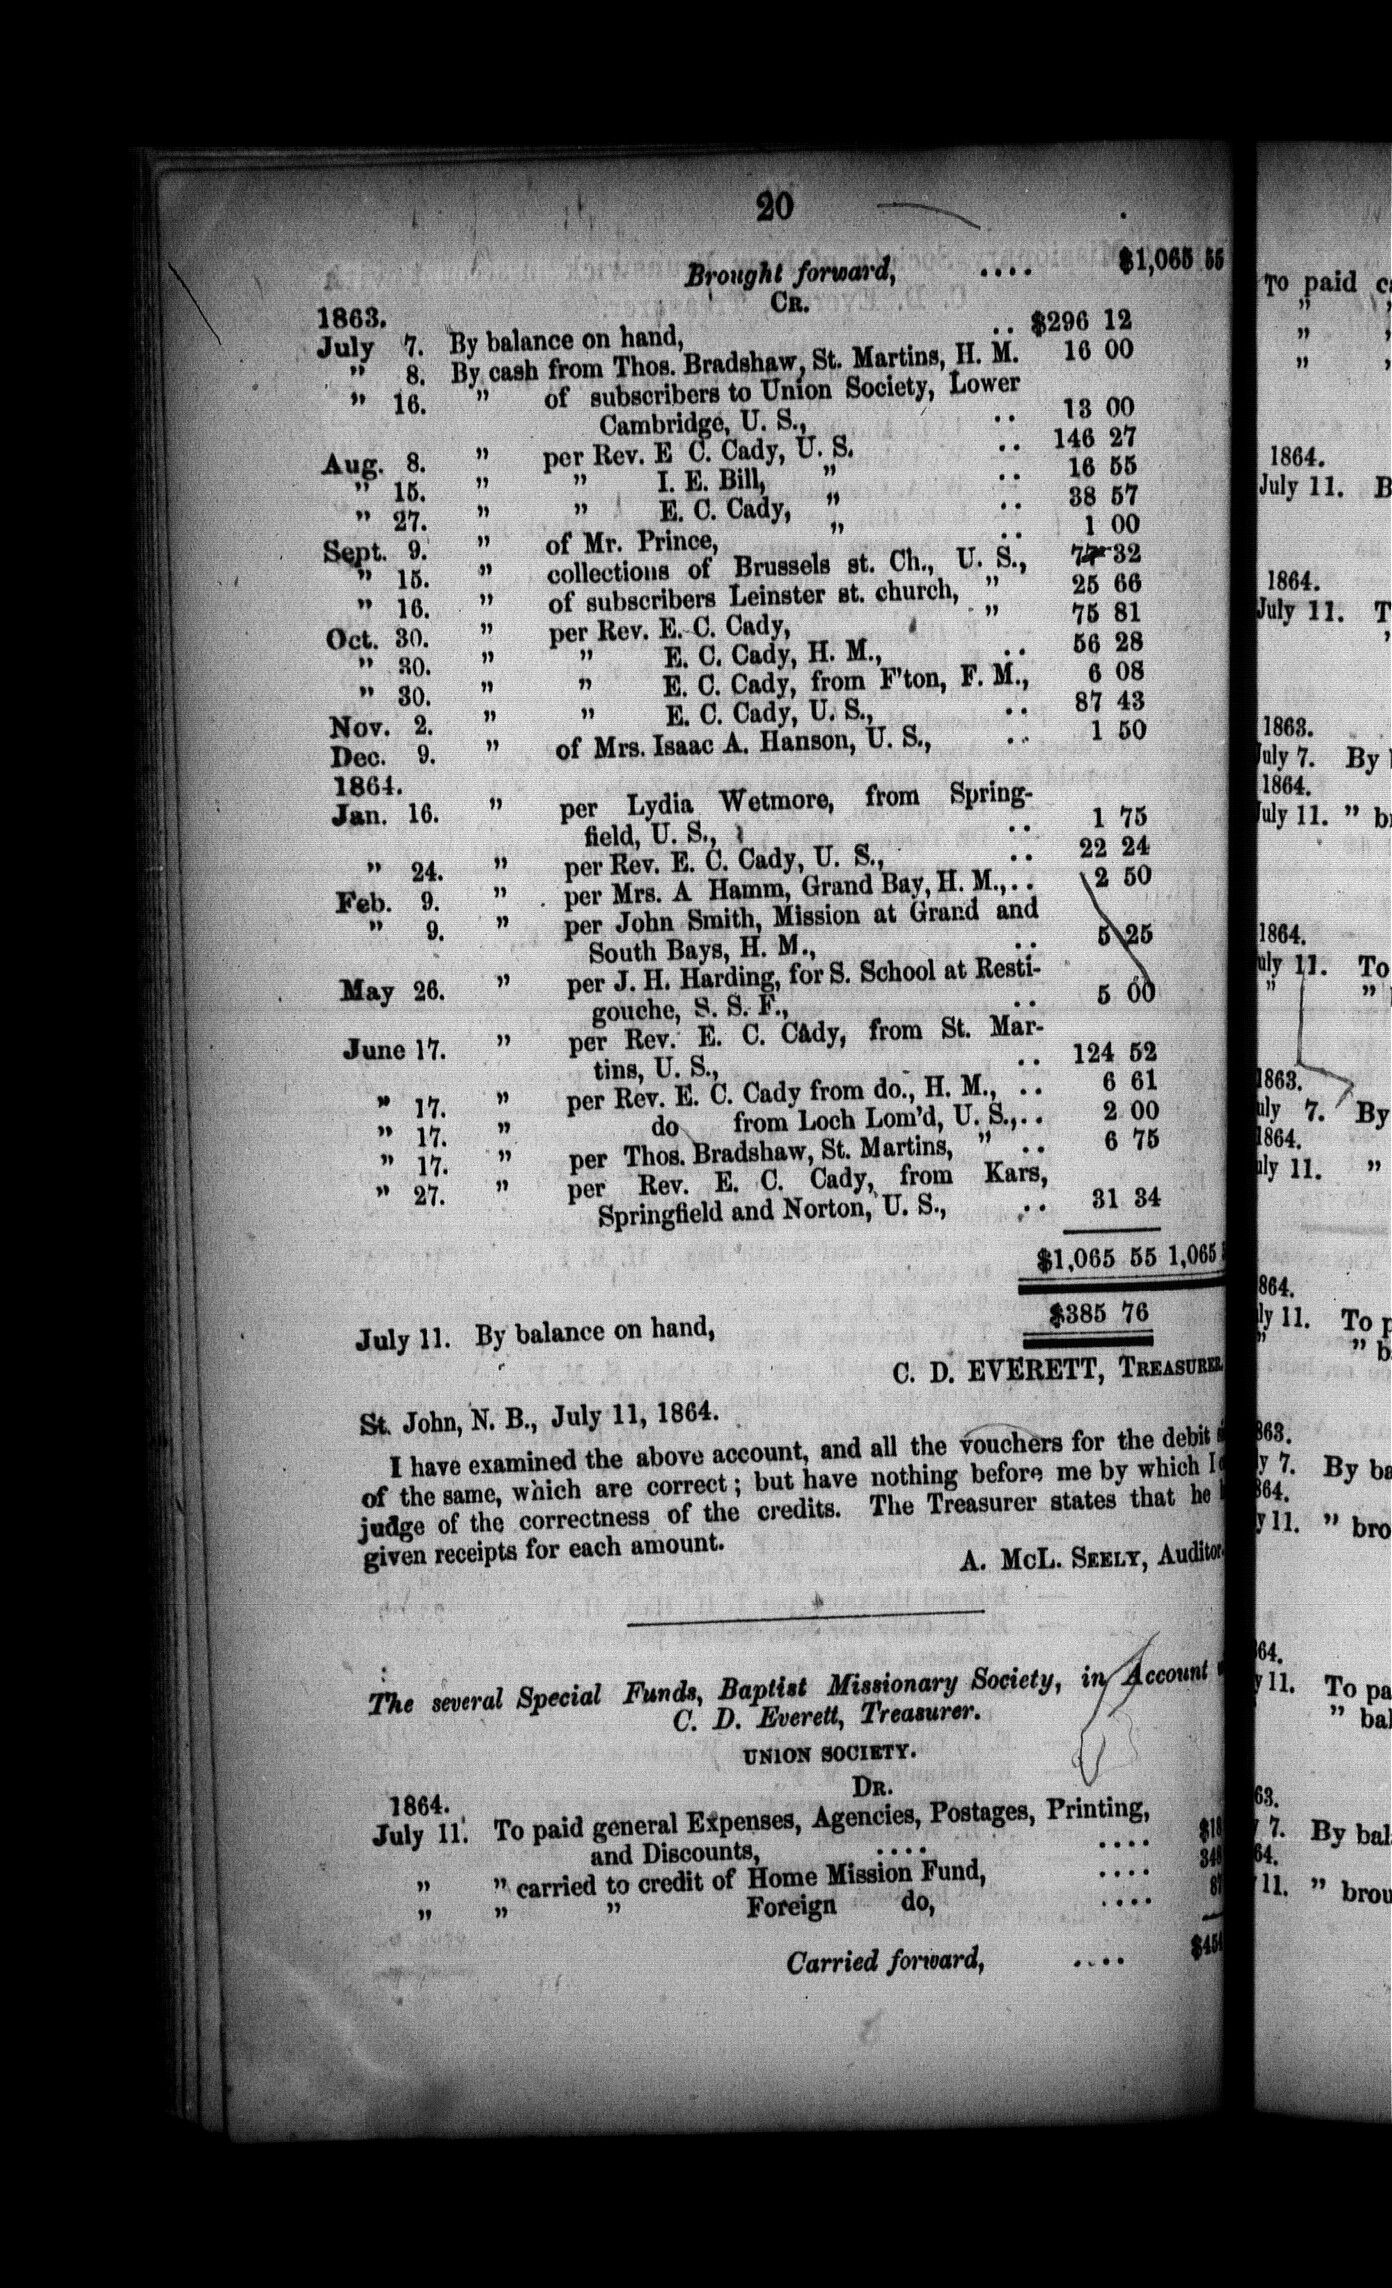 20
Brought forward, .... $1,065 55
CR.
1863.
July 7. By balance on hand, .. $296 12
" 8. By cash from Thos. Bradshaw, St. Martins, H. M. 16 00
" 16. " of subscribers to Union Society, Lower
Cambridge, U. S., .. 13 00
Aug. 8. " per Rev. E C. Cady, U. S. .. 146 27
" 15. " " I. E. Bill, " .. 16 55
" 27. " " E. C. Cady, " .. 38 57
Sept. 9. " of Mr. Prince, " .. 1 00
" 15. " collections of Brussels st. Ch., U. S., 32
" 16. " of subscribers Leinster st. church, " 25 66
Oct. 30. " per Rev. E. C. Cady, " 75 81
" 30. " " E. C. Cady, H. M., .. 56 28
" 30. " " E. C. Cady, from F'ton, F. M., 6 08
Nov. 2. " " E. C. Cady, U. S., .. 87 43
Dec. 9. " of Mrs. Isaac A. Hanson, U. S., .. 1 50
1864.
Jan. 16. " per Lydia Wetmore, from Spring-
field, U. S., .. 1 75
" 24. " per Rev. E. C. Cady, U. S., .. 22 24
Feb. 9. " per Mrs. A Hamm, Grand Bay, H. M., .. 2 50
" 9. " per John Smith, Mission at Grand and
South Bays, H. M., .. 5 25
May 26. " per J. H. Harding, for S. School at Resti-
gouche, S. S. F., .. 5 00
June 17. " per Rev. E. C. Cady, from St. Mar-
tins, U. S., .. 124 52
" 17. " per Rev. E. C. Cady from do., H. M., .. 6 61
" 17. " do from Loch Lom'd, U. S., .. 2 00
" 17. " per Thos. Bradshaw, St. Martins, " .. 6 75
" 27. " per Rev. E. C. Cady, from Kars,
Springfield and Norton, U. S., .. 31 34
$1,065 55 1,065
July 11. By balance on hand, $385 76
C. D. EVERETT, TREASURER
St. John, N. B., July 11, 1864.
I have examined the above account, and all the vouchers for the debit
of the same, which are correct; but have nothing before me by which I
judge of the correctness of the credits. The Treasurer states that he
given receipts for each amount.
A. McL. SEELY, Auditor.
The several Special Funds, Baptist Missionary Society, in Account
C. D. Everett, Treasurer.
UNION SOCIETY.
DR.
1864.
July 11. To paid general Expenses, Agencies, Postages, Printing,
and Discounts, .... .... $18
" " carried to credit of Home Mission Fund, .... 348
" " " Foreign do, .... 87
Carried forward, .... $454
To paid
1864.
July 11. B
1864.
July 11. T
1863.
July 7. By
1864.
July 11. " b
1864.
July 11. To
" "
1863.
July 7. By
1864.
July 11. "
864.
ly 11. To p
" " b
863.
y 7. By ba
864.
y 11. " bro
64.
y 11. To pa
" bal
63.
7. By bal
64.
11. " brou